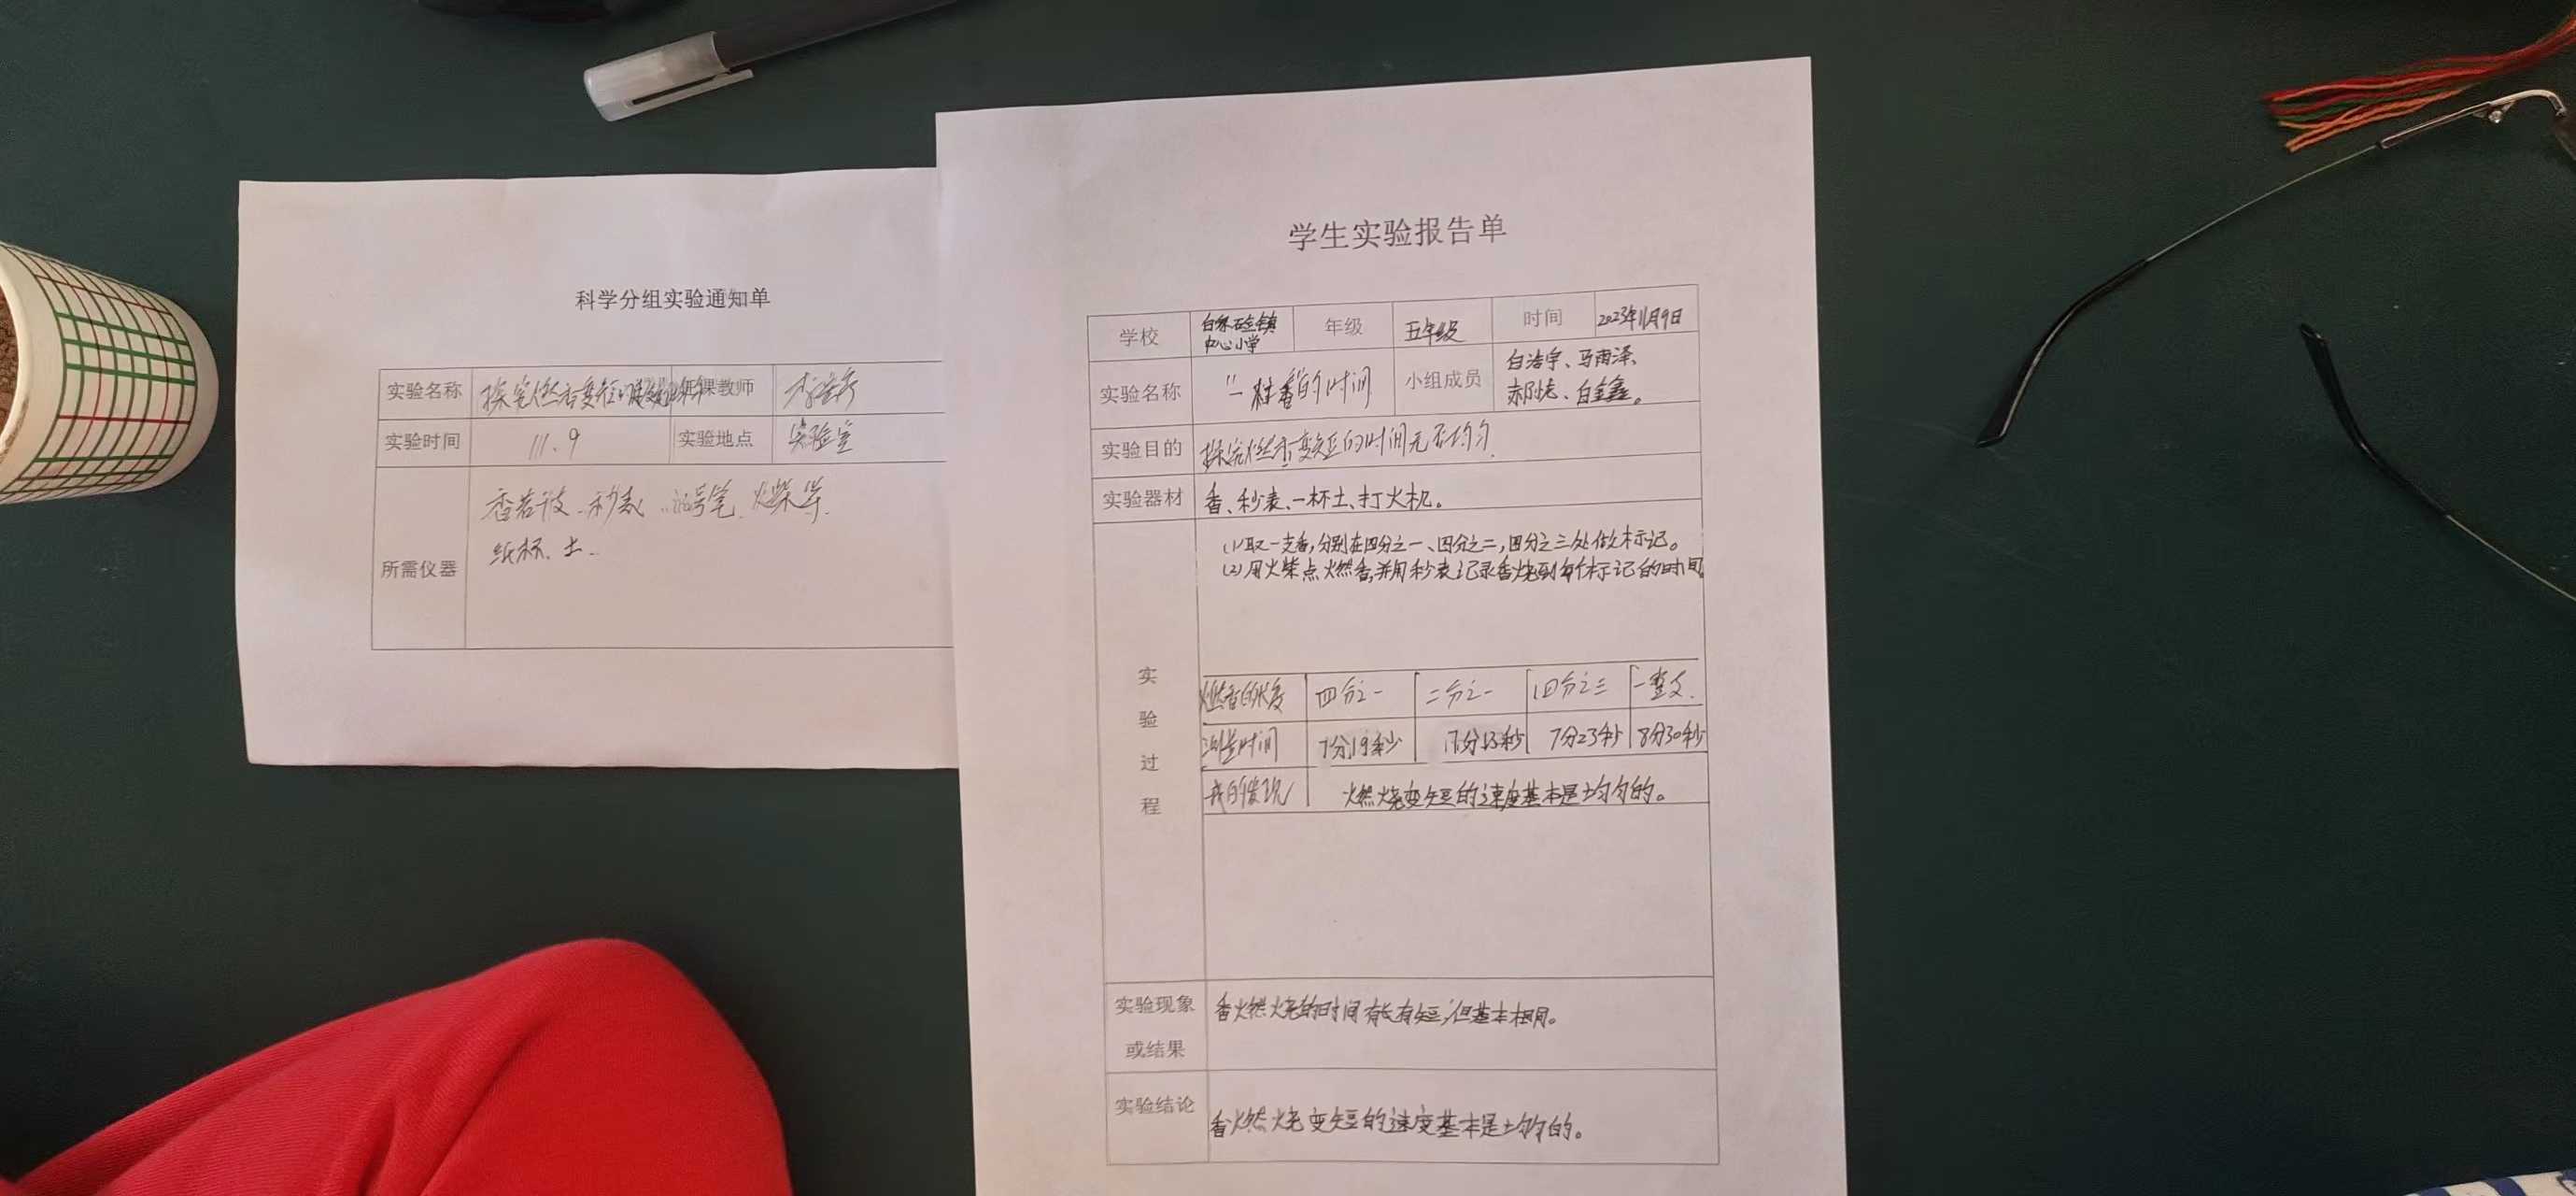 科学分组实验通知单
实验名称 探究燃香变短 任课教师
实验时间 11.9 实验地点 实验室
所需仪器
香若干支、秒表、记号笔、火柴等.
纸杯、土.
学生实验报告单
学校 中心小学 年级 五年级 时间 2023年11月9日
实验名称 "一炷香"的时间 小组成员 白浩宇、马雨泽、
白金鑫。
实验目的 探究燃香变短的时间 均匀.
实验器材 香、秒表、一杯土、打火机。
实验过程
(1)取一支香,分别在四分之一、四分之二,四分之三处做标记。
(2)用火柴点燃香,并用秒表记录香烧到每个标记的时间
燃香的长度 四分之一 二分之一 四分之三 一整支.
测量时间 7分19秒 分13秒 7分23秒 8分30秒
我的发现 燃烧变短的速度基本是均匀的。
实验现象
或结果
香燃烧的时间有长有短,但基本相同。
实验结论
香燃烧变短的速度基本是均匀的。